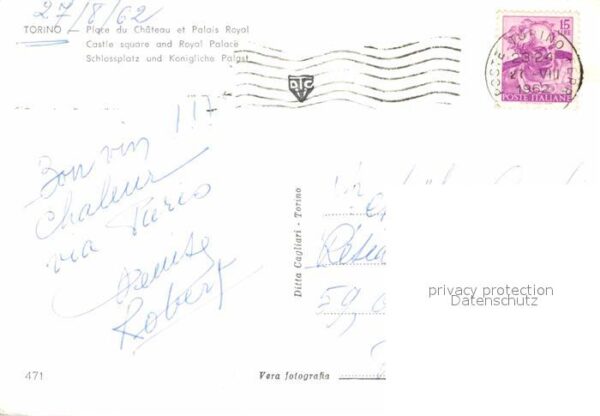 27/8/62
TORINO - Place du Château et Palais Royal
Castle square and Royal Palace
Schlossplatz und Konigliche Palast
15
LIRE
TORINO
23-24
27 VIII
1962
POSTE ITALIANE
Bon vin !!?
Chaleur
via
Denise
Robert
Ditta Cagliari - Torino
59,
privacy protection
Datenschutz
471
Vera fotografia